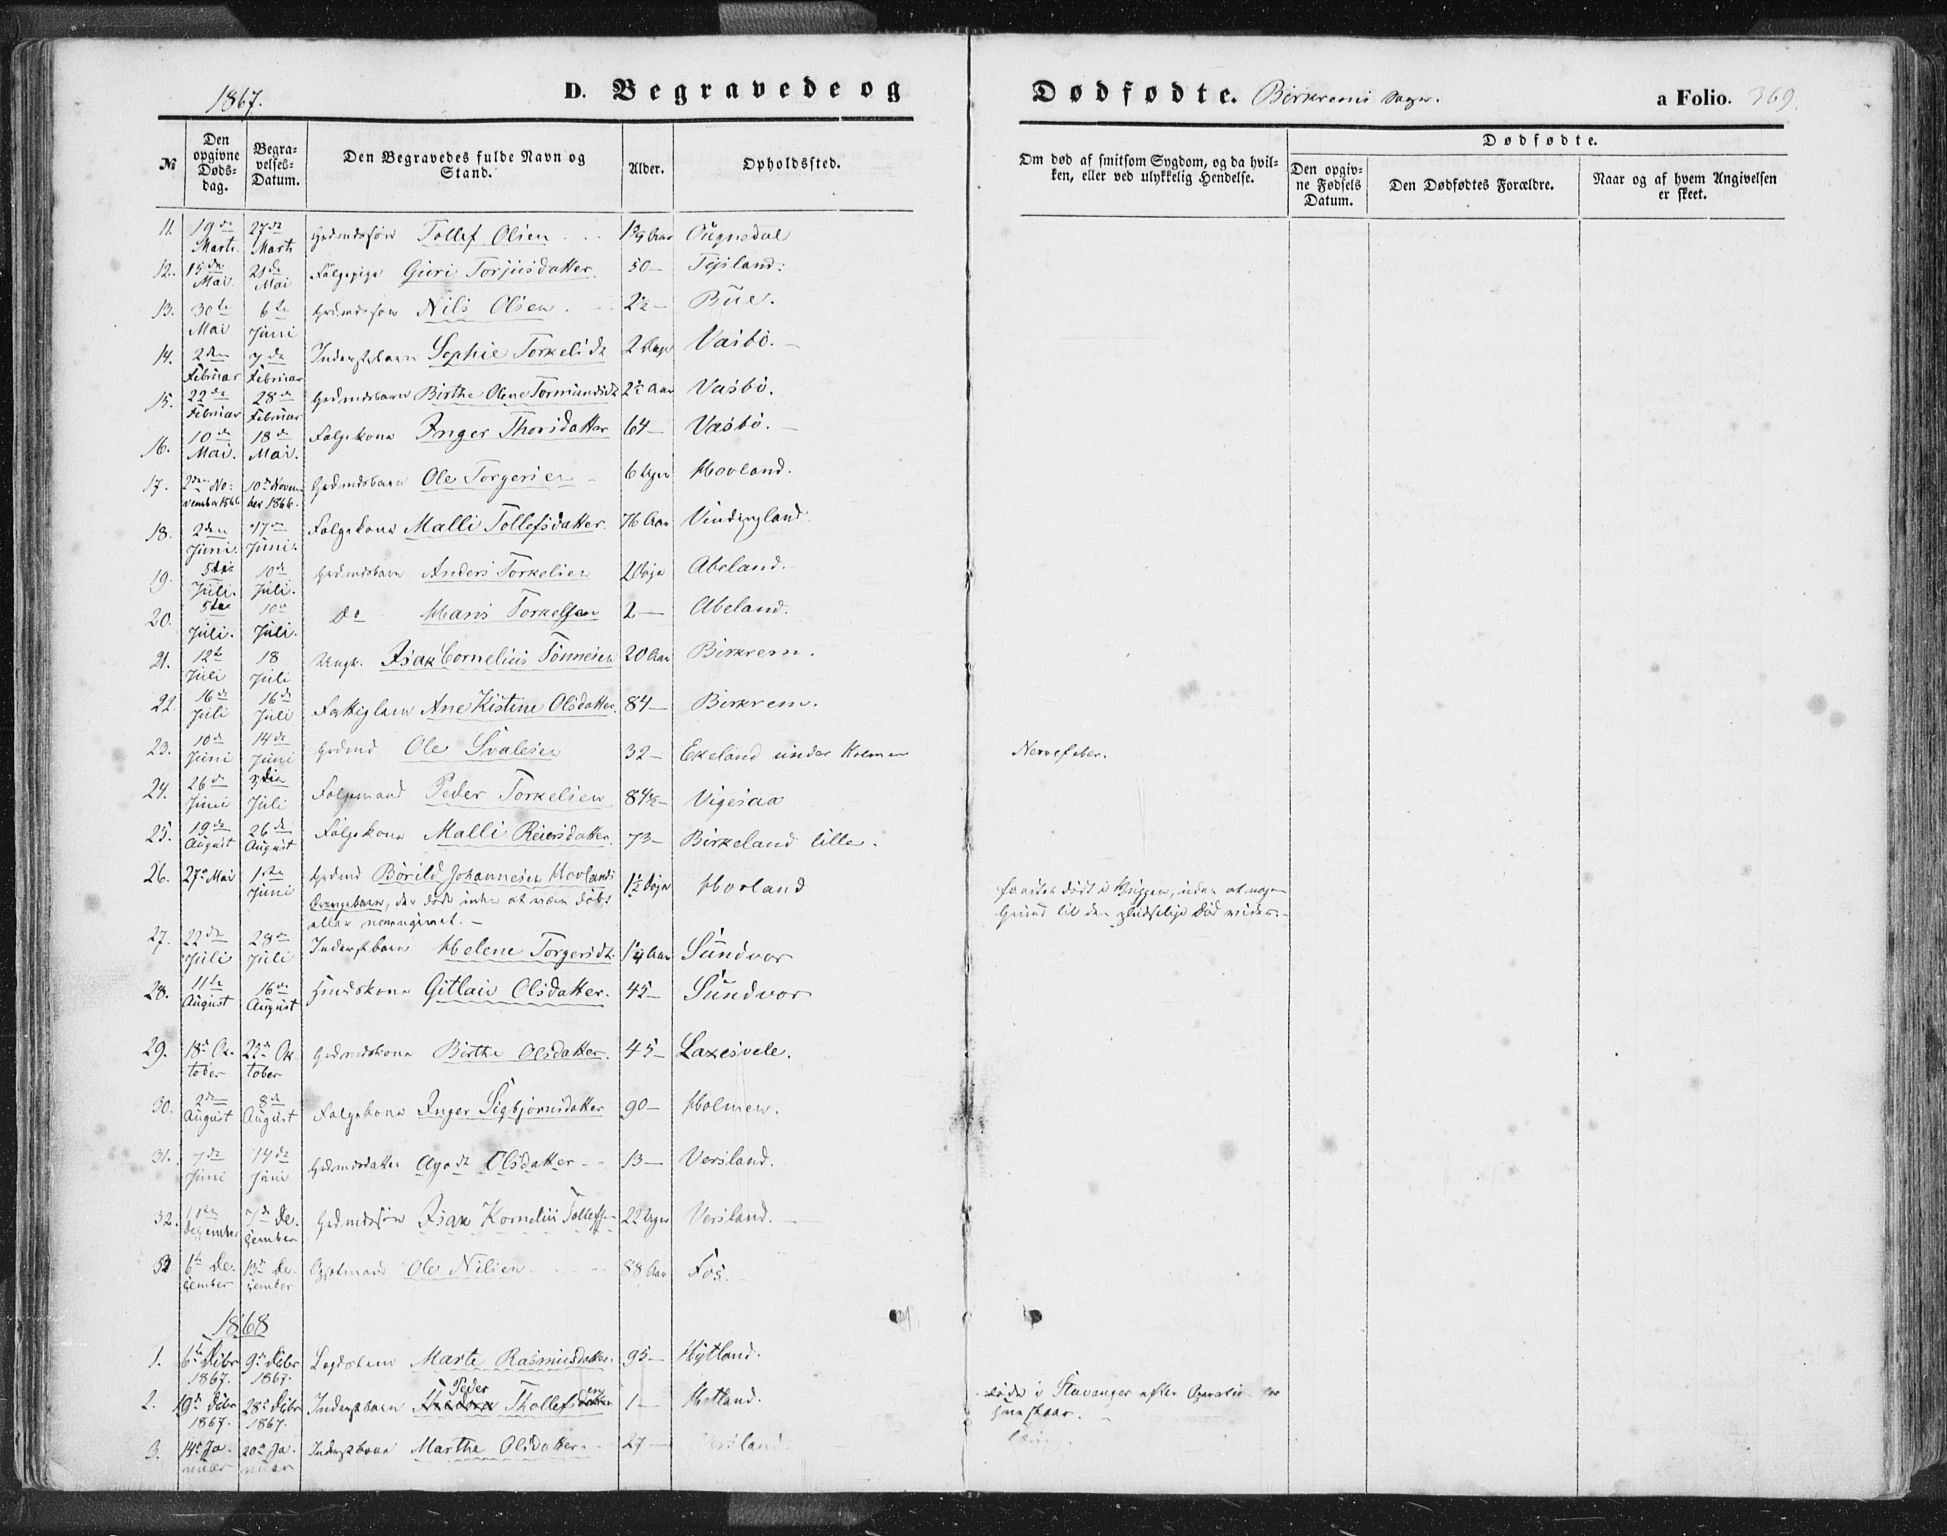 1867.
D. Begravede og
Dødfødte. Birkrems Sogn.
a Folio. 369.
№
Den opgivne Døds-dag.
Begra-velses-Datum.
Den Begravedes fulde Navn og Stand.
Alder.
Opholdssted.
Om død af smitsom Sygdom, og da hvil-ken, eller ved ulykkelig Hendelse.
Dødfødte.
Den opgiv-ne Fødsels Datum.
Den Dødfødtes Forældre.
Naar og af hvem Angivelsen er skeet.
11. 19de Marts 27de Marts Grdmdssøn Tollef Olsen Aar
12. 15de Mai 21de Mai Følgepige Guri Torjusdatter. 50 —
13. 30te Mai 6te Juni Grdmdssøn Nils Olsen. 2½ — Bue.
14. 2den Februar 7de Februar Inderstbarn Sophie Torkelsdt 2 Dage Vasbø.
15. 22de Februar 28de Februar Grdmdsbarn Birthe Olene Tormundsdt Aar Vasbø.
16. 10de Mai. 18de Mai. Følgekone Inger Thorsdatter 64 — Vasbø.
17. 2den November 1866 10de November 1866. Grdmdsbarn Ole Torgersen 6 Uger Hovland.
18. 2den Juni. 17de Juni. Følgekone Malli Tollefsdatter. 76 Aar
19. 5te Juli. 10de Juli. Grdmdsbarn Anders Torkelsen Dage Abeland.
20. 5te Juli. 10de Juli. do Hans Torkelsen 2 — Abeland.
21. 12te Juli 18 Juli Ungk. Isak Cornelius Tønnesen 20 Aar Birkrem.
22. 16de Juli 16de Juli Fattiglem Ane Kistine Olsdatter. 84 — Birkrem.
23. 10de Juni 14de Juni Grdmd Ole Svalesen 32 — Ekeland under Holmen Nervefeber.
24. 26de Juni 3die Juli Følgemand Peder Torkelsen Vigesaa
25. 19de August 26de August Følgekone Malli Reiersdatter. 73 — Birkeland lille.
26. 27de Mai 1ste Juni Grdmd Børild Johannesen Hovlands 1½ Døgn Hovland
Drengebarn, der døde inden at være døbt
eller navngivet. —
27. 22de Juli 28de Juli Inderstbarn Helene Torgersdt. Aar Sundvor
28. 11te August 16de August Huuskone Gitlau Olsdatter. 45 — Sundvor
29. 18de October October Grdmdskone Birthe Olsdatter. 45 — Laxesvele.
30. 2den August 8de August Følgekone Inger Sigbjørnsdatter 90 — Holmen.
31. 7de Juni 14de Juni Grdmdsdatter Agade Olsdatter 13 — Versland.
32. 1ste December 7de December Grdmdssøn Isak Kornelius Tollefsen 22 Uger Versland.
33 6te December 13de December Ole Nilsen 88 Aar Fos.
1868
1. 6te Debr 1867. 9de Debr 1867. Lægdslem Marte Rasmusdatter. 95 — Hytland.
2. 19de Debr 1867. 28de Debr 1867. Inderstbarn Peder Thollefsen 1 — Hetland. døde i Stavanger efter Operation for
Hareskaar.
3. 14de Januar 20de Januar Inderstkone Marthe Olsdatter 27 — Versland.